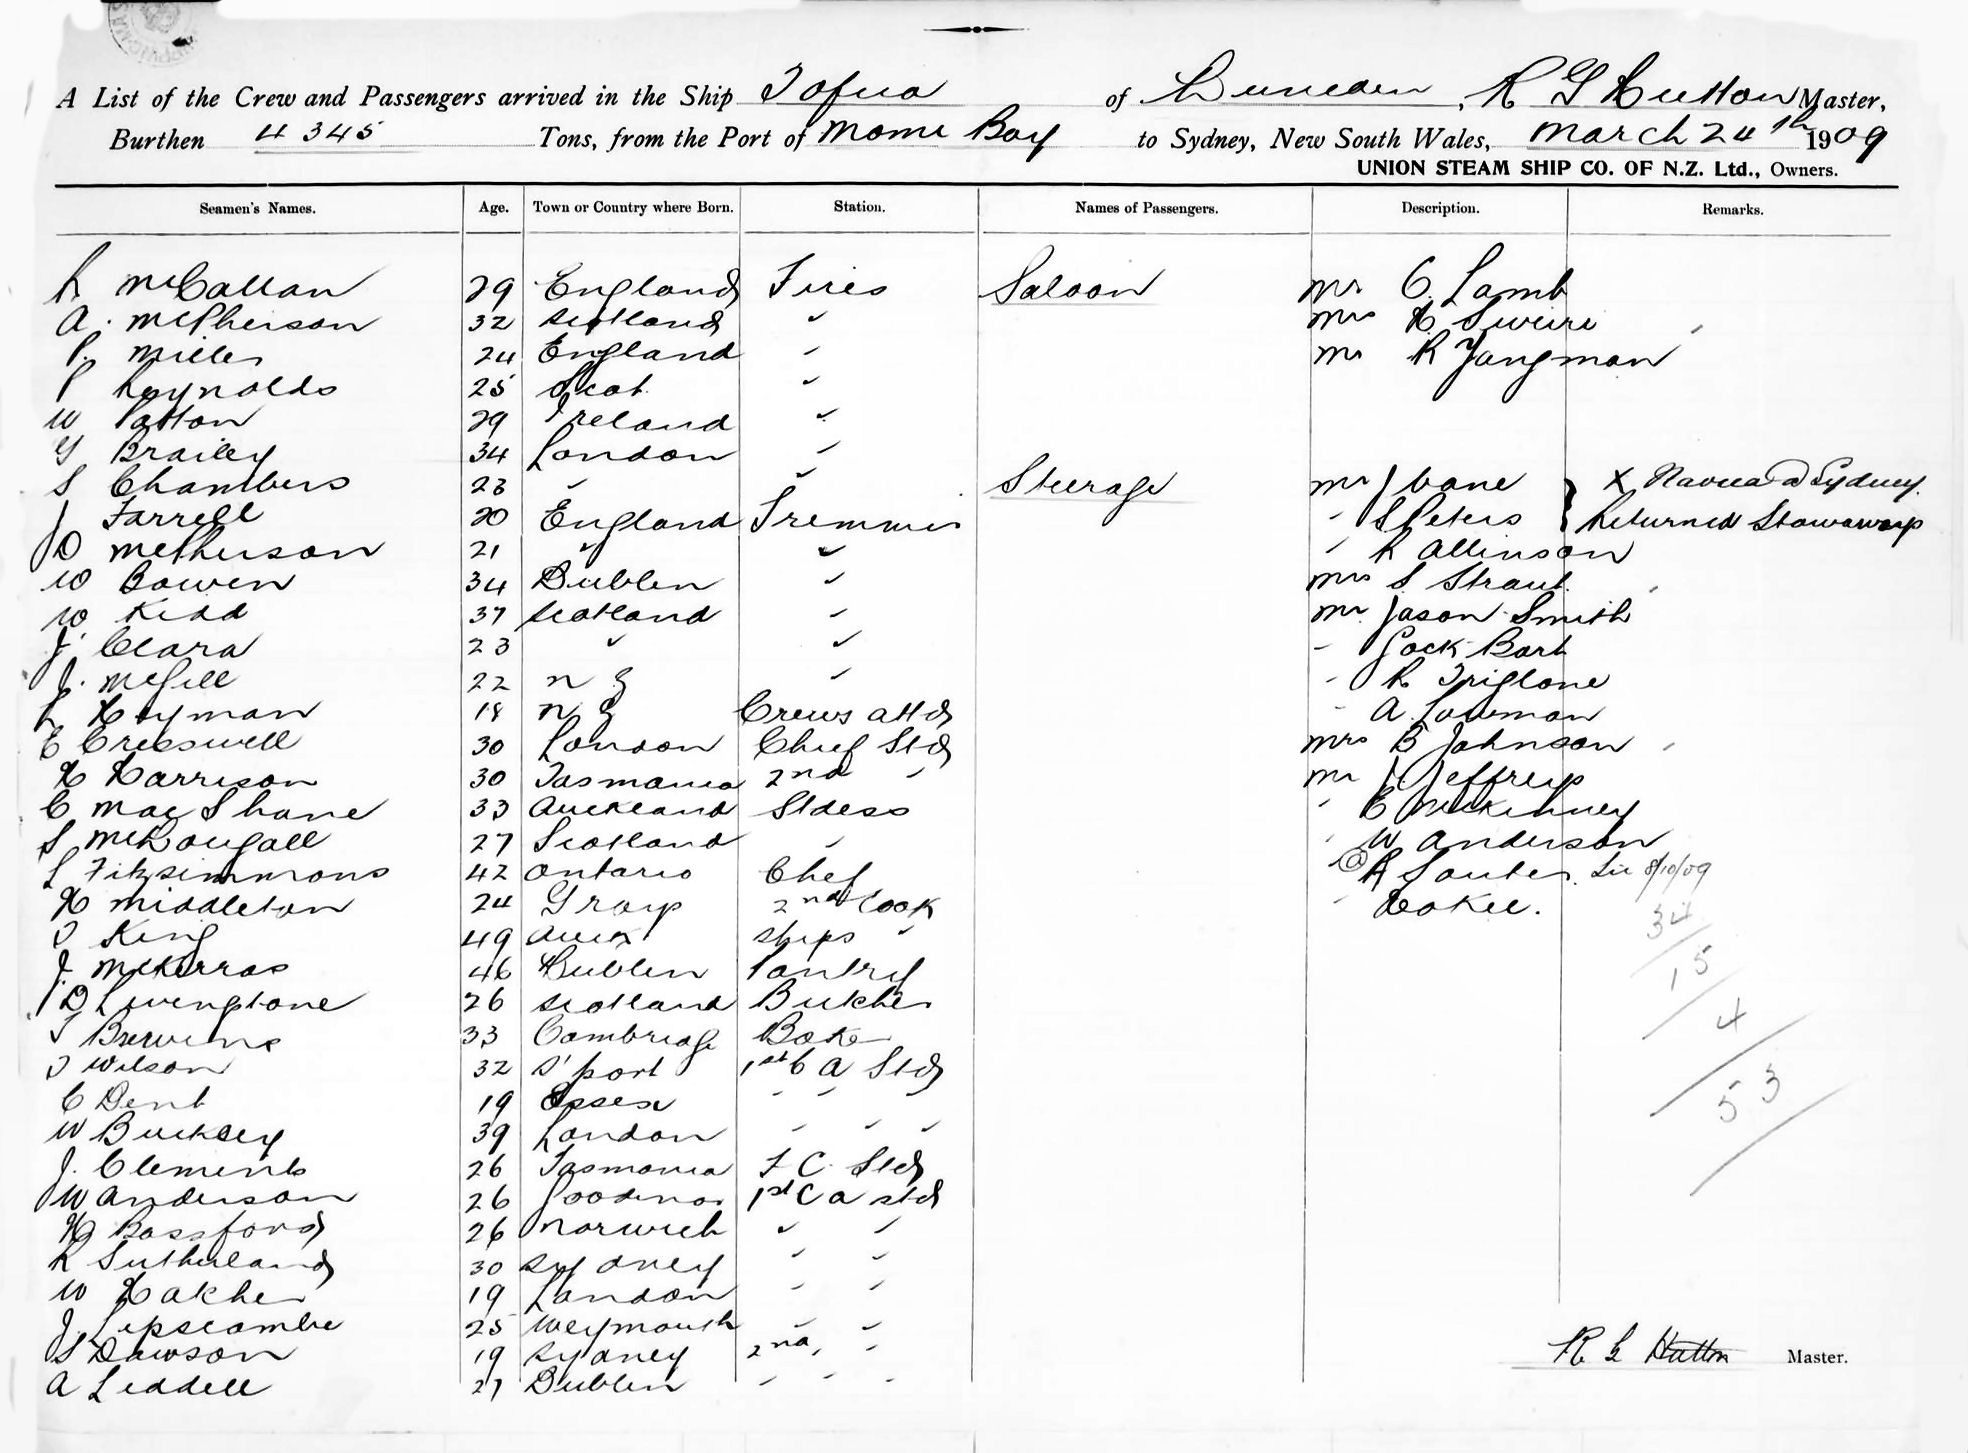 A List of the Crew and Passengers arrived in the Ship Tofua of Dunedin, R G Hutton Master,
Burthen 4345 Tons, from the Port of Momi Bay to Sydney, New South Wales, March 24th 1909
UNION STEAM SHIP CO. OF N.Z. Ltd., Owners.
Seamen's Names. Age. Town or Country where Born. Station. Names of Passengers. Description. Remarks.
McCallan 29 England Fires Saloon Mr C. Lamb
A. McPherson 32 Scotland " Mrs H
P. Miller 24 England " Mr R Yangman
P Reynolds 25 Scot. "
W Patton 29 Ireland "
G Brailey 34 London "
S Chambers 23 " " Steerage Mr J Vane X Navua @ Sydney.
J Farrell 20 England Trimmer " S Peters Returned Stowaways
D McPherson 21 " " " R Allinson
W Bowen 34 Dublin " Mrs S Straut
W Kidd 37 Scotland " Mr Jason Smith
J. Clara 23 " " " Jack Bart
J. McGill 22 N Z " " R Triglone
R Hyman 18 N Z Crews Attd " A Lowman
E Cresswell 30 London Chief Std Mrs B Johnson "
H Harrison 30 Tasmania 2nd " Mr J. Jeffreys
C MacShane 33 Auckland Stdess " E McKinney
S McDougall 27 Scotland " " W Anderson
L Fitzsimmons 42 Ontario Chef @ R Souter.  8/10/09
H Middleton 24 Grays 2nd Cook "
T King 49 Auck Ships " 34
J. McKerras 46 Dublin Pantry 15
D Livingstone 26 Scotland Butcher 4
T 33 Cambridge Baker 53
T Wilson 32 S'port 1st C A Std
C Dent 19 Essex " " "
W Buckley 39 London " " "
J. Clements 26 Tasmania F C. Std
W Anderson 26 1st C A Std
H Bassford 26 Norwich " "
R Sutherland 30 Sydney " "
W Hatcher 19 London " "
J. Lipscombe 25 Weymouth " "
S Dawson 19 Sydney 2nd, "
A Liddell 27 Dublin " " "
R G Hutton Master.